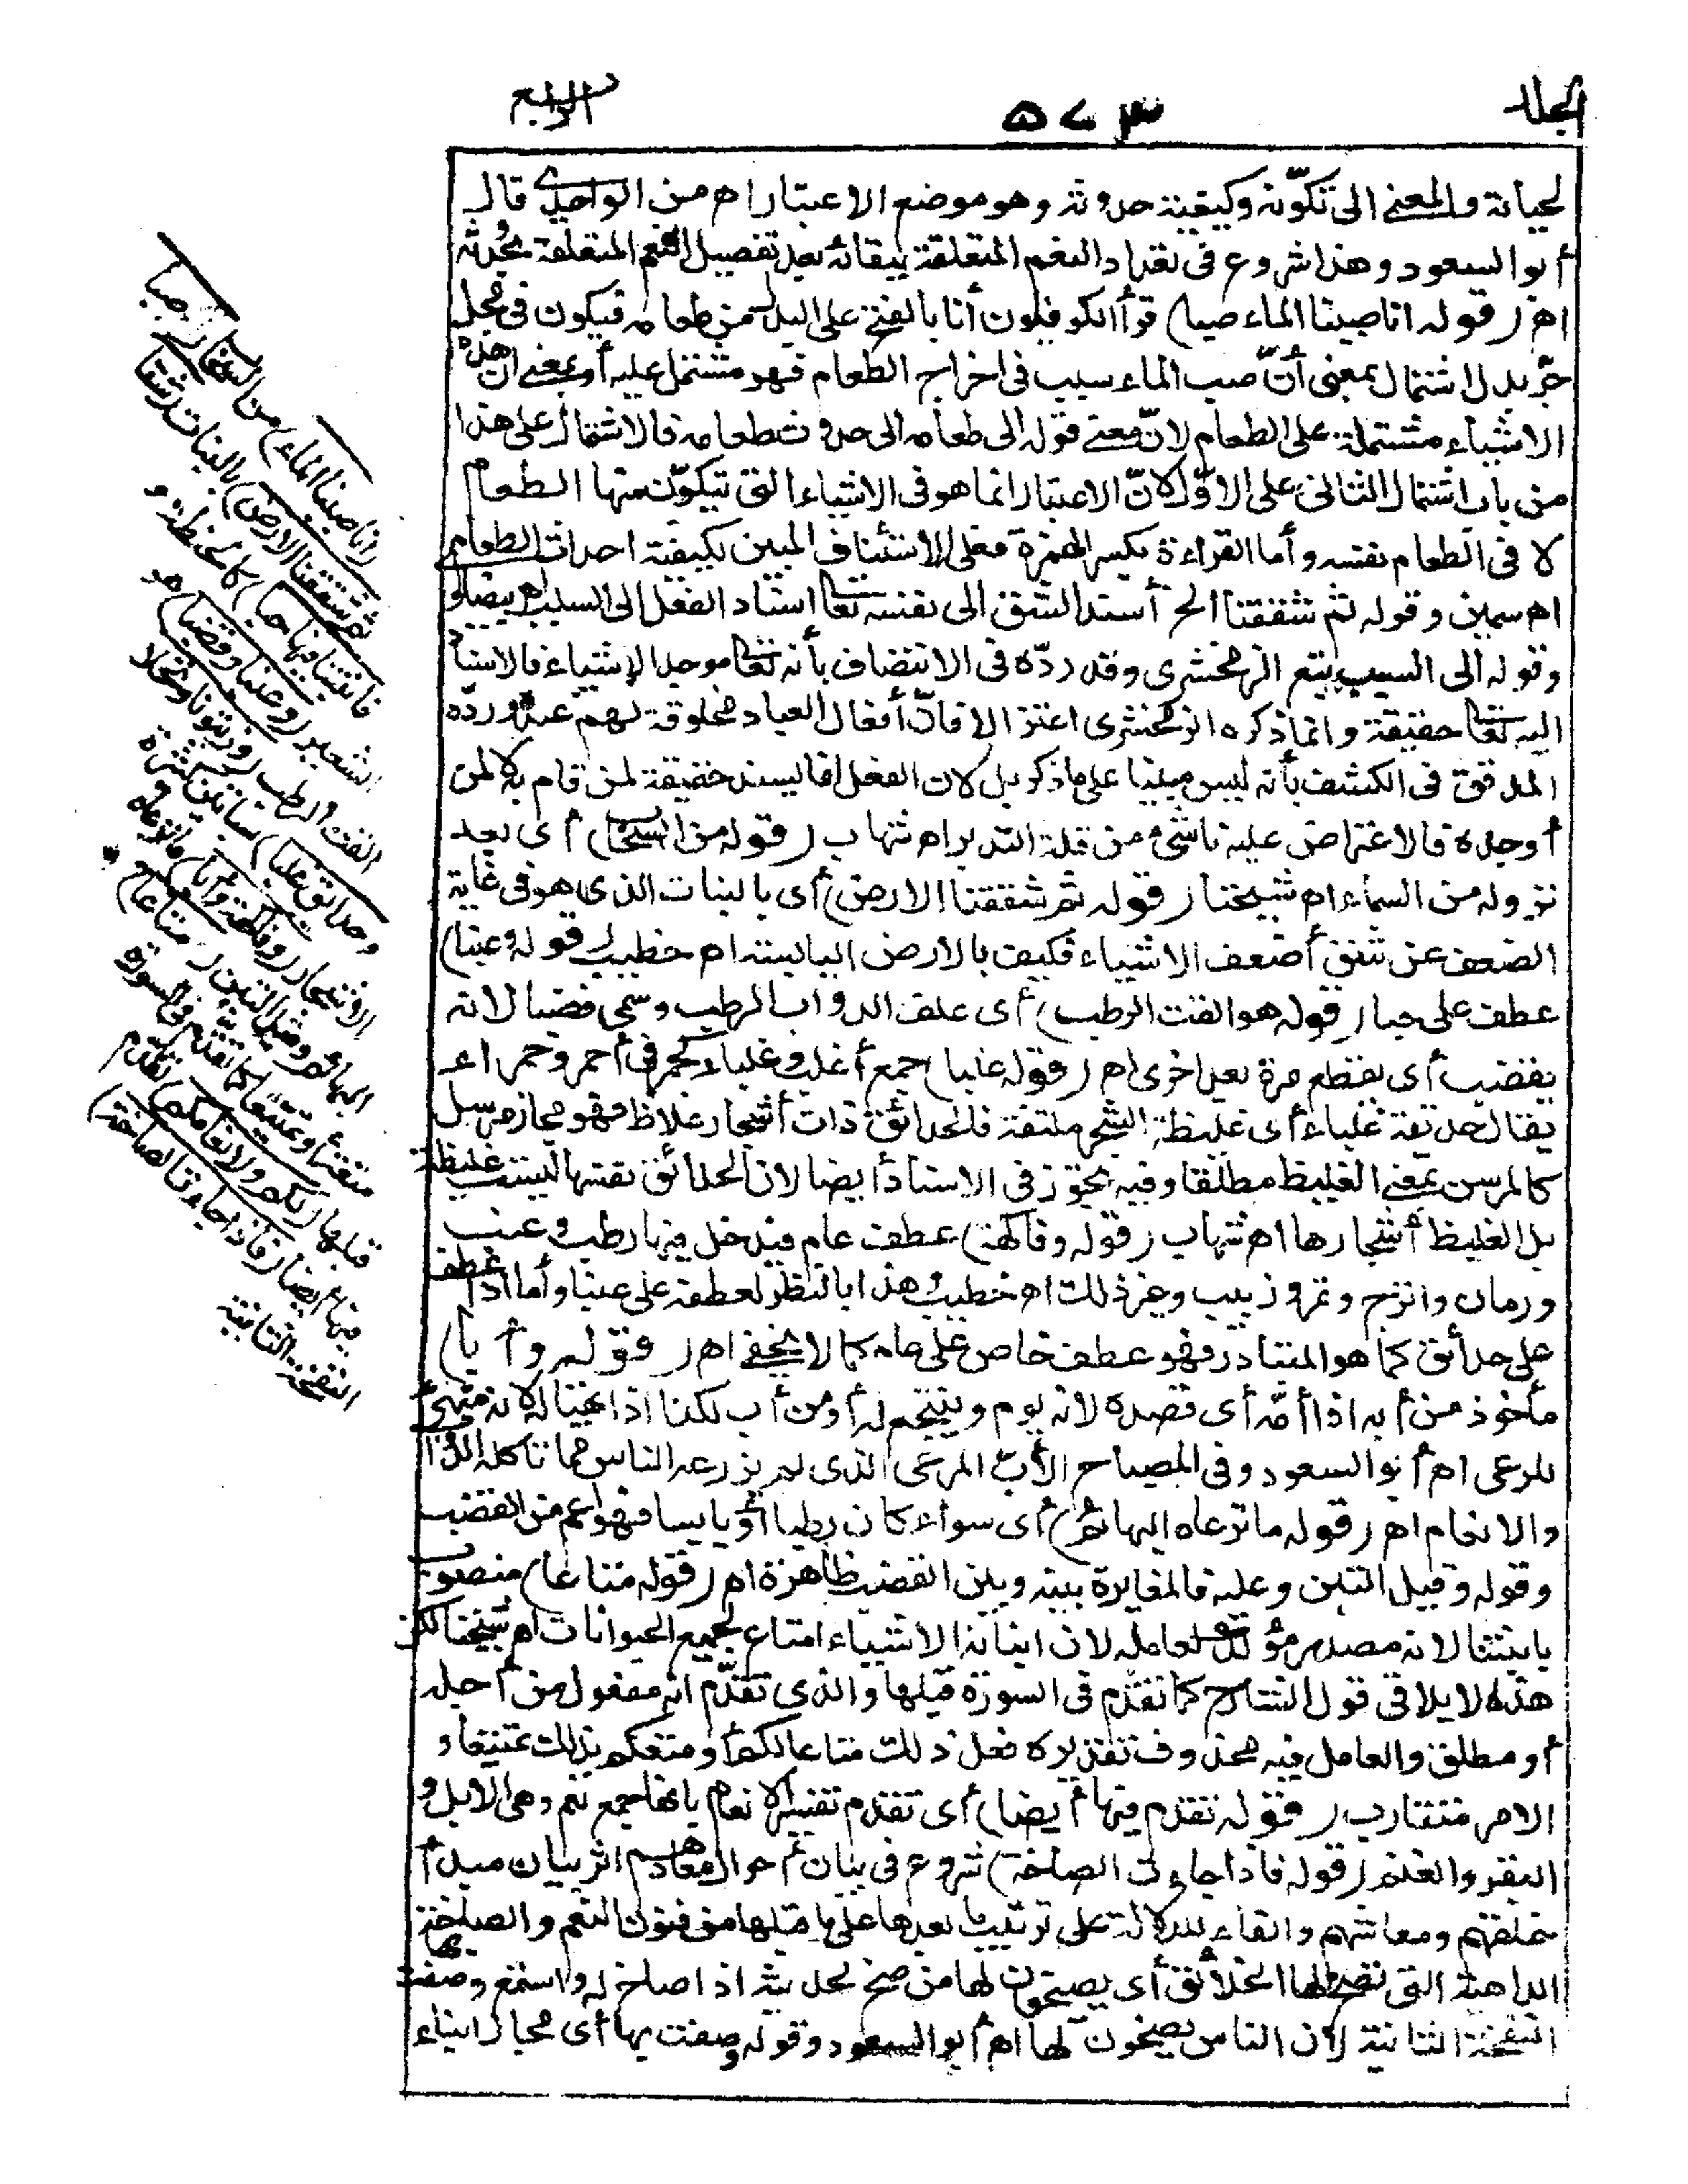 الجلد ٥٧٣ الرابع
لحياته والمعنى الى تكوّنه وكيفية حدوثه وهو موضع الاعتبار اه من الواحدى قال
أبو السعود وهذا شروع فى تعداد النعم المتعلقة ببقائه بعد تفصيل النعم المتعلقة بحدوثه
اه (قوله انا صببنا الماء صبا) قرأ الكوفيون أنا بالفتح على البدل من طعامه فيكون فى محل
جرّ بدل اشتمال بمعنى أنّ صب الماء سبب فى اخراج الطعام فهو مشتمل عليه أو بمعنى ان هذه
الاشياء مشتملة على الطعام لانّ معنى قوله الى طعامه الى حدوث طعامه فالاشتمال على هذا
من باب اشتمال الثانى على الاوّل لانّ الاعتبار انما هو فى الاشياء التى تتكوّن منها الطعام
لا فى الطعام نفسه وأما القراءة بكسر الهمزة فعلى الاستئناف المبين لكيفية احداث الطعام
اه سمين وقوله ثم شققنا الخ أسند الشق الى نفسه تعا اسناد الفعل الى السبب اه بيضاوى
وقوله الى السبب يتبع الزمخشرى وقد ردّه فى الانتصاف بأنه تعا موجد الاشياء فالاسناد
اليه تعا حقيقة وانما ذكره الزمخشرى اعتزالا فانّ أفعال العباد مخلوقة لهم عنده وردّه
المدقق فى الكشف بأنه ليس مبنيا على ما ذكر بل لان الفعل انما يسند حقيقة لمن قام به لا لمن
أوجده فالاعتراض عليه ناشئ من قلة التدبر اه شهاب (قوله من السحاب) أى بعد
نزوله من السماء اه شيخنا (قوله ثم شققنا الارض) أى بالنبات الذى هو فى غاية
الضعف عن شق أضعف الاشياء فكيف بالارض اليابسة اه خطيب (قوله وعنبا)
عطف على حبا (قوله هو القت الرطب) أى علف الدواب الرطب وسمى قضبا لانه
يقضب أى يقطع مرة بعد اخرى اه (قوله غلبا) جمع أغلب وغلباء كحمر فى أحمر وحمراء
يقال حديقة غلباء أى غليظة الشجر ملتفة فالحدائق ذات أشجار غلاظ فهو مجاز مرسل
كالمرسن بمعنى الغليظ مطلقا وفيه تجوّز فى الاسناد أيضا لان الحدائق نفسها ليست غليظة
بل الغليظ أشجارها اه شهاب (قوله وفاكهة) عطف عام فيدخل فيها رطب وعنب
ورمان واترج وتمر وزبيب وغير ذلك اه خطيب وهذا بالنظر لعطفه على عنبا وأما اذا عطف
على حدائق كما هو المتبادر فهو عطف خاص على عام كما لا يخفى اه (قوله وأبا)
مأخوذ من أبه اذا أمّه أى قصده لانه يوم وينتجع له أو من أب لكذا اذا تهيأ له لانه متهيئ
للرعى اه أبو السعود وفى المصباح الأبّ المرعى الذى لم يزرعه الناس مما تأكله الدواب
والانعام اه (قوله ما ترعاه البهائم) أى سواء كان رطبا أو يابسا فهو أعم من القضب
وقوله وقيل التبن وعليه فالمغايرة بينه وبين القضب ظاهرة اه (قوله متاعا) منصوب
بانبتنا لانه مصدر مؤكد لعامله لان انباته الاشياء امتاع لجميع الحيوانات اه شيخنا لكن
هذه لا يلاقى قول الشارح كما تقدّم فى السورة قبلها والذى تقدّم انه مفعول من أجله
أو مطلق والعامل فيه محذوف تقديره فعل ذلك متاعا لكم أو متعكم بذلك تمتيعا و
الامر متقارب (قوله تقدم فيها أيضا) أى تقدم تفسير الانعام بانها جمع نعم وهى الابل و
البقر والغنم (قوله فاذا جاءت الصاخة) شروع فى بيان أحوال معادهم اثر بيان مبدأ
خلقهم ومعاشهم والفاء للدلالة على ترتيب ما بعدها على ما قبلها من فنون النعم والصاخة
الداهية التى تصخ لها الخلائق أى يصيخون لها من صخ لحديثه اذا أصاخ له واستمع وصفت بها
النفخة الثانية لان الناس يصيخون لها اه أبو السعود وقوله وصفت بها أى مجازا بناء
(انا صببنا الماء) من السحاب (صبا
ثم شققنا الارض) بالنبات (شقا
فانبتنا فيها حبا) كالحنطة و
الشعير (وعنبا وقضبا) هو
القت الرطب (وزيتونا ونخلا
وحدائق غلبا) بساتين كثيرة
الاشجار (وفاكهة وأبا) ما ترعاه
البهائم وقيل التبن (متاعا)
متعة أو تمتيعا كما تقدّم فى السورة
قبلها (لكم ولانعامكم) تقدّم
فيها أيضا (فاذا جاءت الصاخة)
النفخة الثانية